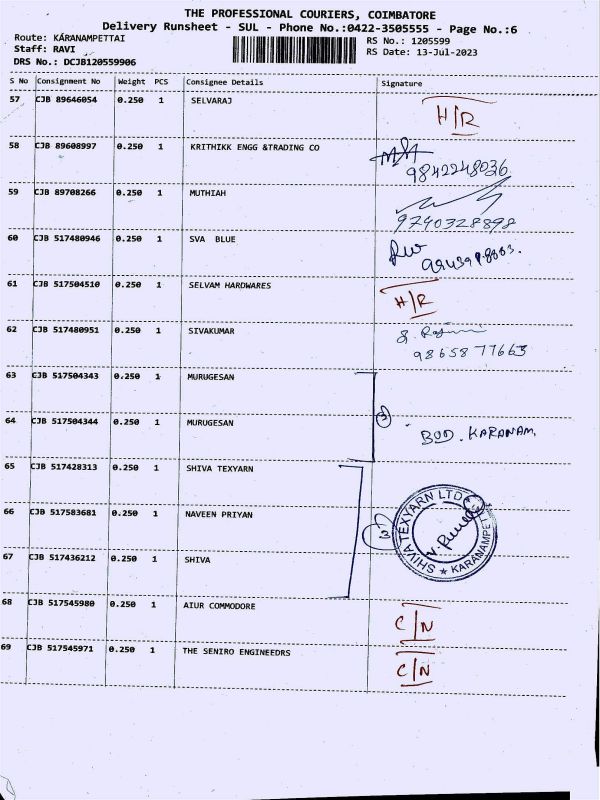 THE PROFESSIONAL COURIERS, COIMBATORE
Delivery Runsheet - SUL - Phone No.:0422-3505555 - Page No.:6
Route: KARANAMPETTAI
RS No.: 1205599
Staff: RAVI
RS Date: 13-Jul-2023
DRS No.: DCJB120559906
S No Consignment No Weight PCS Consignee Details Signature
57 CJB 89646054 0.250 1 SELVARAJ H/R
58 CJB 89608997 0.250 1 KRITHIKK ENGG &TRADING CO
9842248036
59 CJB 89708266 0.250 1 MUTHIAH
9740328898
60 CJB 517480946 0.250 1 SVA BLUE
61 CJB 517504510 0.250 1 SELVAM HARDWARES H/R
62 CJB 517480951 0.250 1 SIVAKUMAR
98658 77663
63 CJB 517504343 0.250 1 MURUGESAN
3
64 CJB 517504344 0.250 1 MURUGESAN BOD. KARANAM.
65 CJB 517428313 0.250 1 SHIVA TEXYARN
66 CJB 517583681 0.250 1 NAVEEN PRIYAN
3
SHIVA TEXYARN LTD
67 CJB 517436212 0.250 1 SHIVA
68 CJB 517545980 0.250 1 AIUR COMMODORE C/N
69 CJB 517545971 0.250 1 THE SENIRO ENGINEEDRS C/N